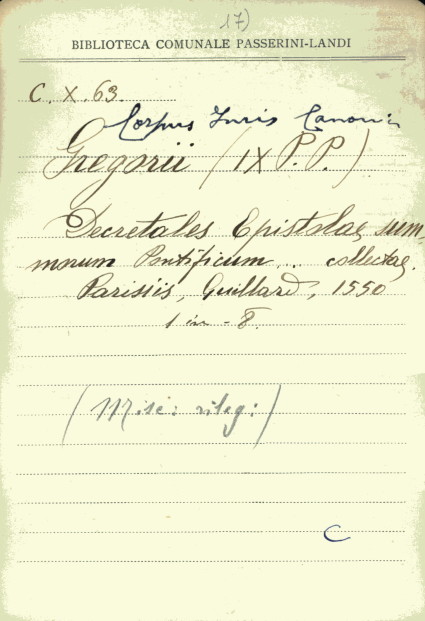 17)
BIBLIOTECA COMUNALE PASSERINI-LANDI
C. X. 63.
Corpus Iuris Canonici
Gregorii (IX P. P.)
Decretales Epistolae sum-
morum Pontificum .. collectae.
Parisiis, Guillard, 1550
1 in - 8.
(Misc: rileg:)
C